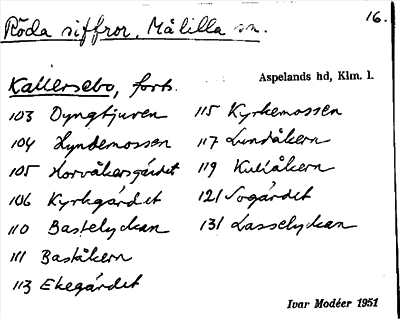 16.
Röda siffror, Målilla sn.
Kallersebo, forts.
Aspelands hd, Klm. l.
103 Dyngtjuren
104 Lyndemossen
105 Korvåkersgärdet
106 Kyrkgärdet
110 Bastelyckan
111 Baståkern
113 Ekegärdet
115 Kyrkemossen
117 Lundåkern
119 Kullåkern
121 Sogärdet
131 Lasselyckan
Ivar Modéer 1951